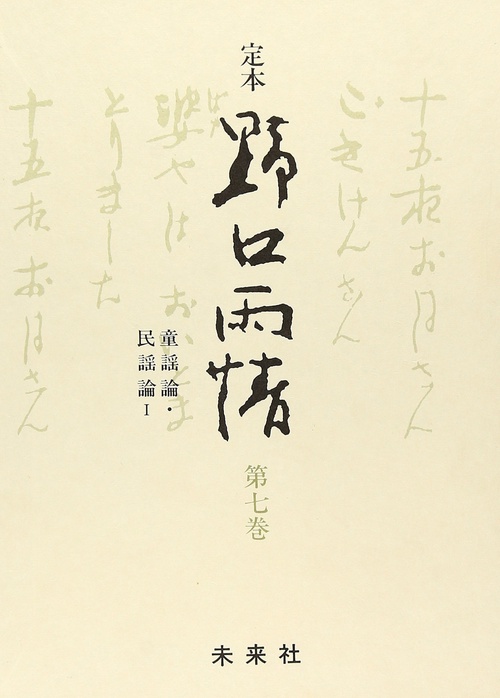 定本
野口雨情
童謡論・
民謡論Ⅰ
第七巻
十五夜お月さん
ごきけんさん
婆やは おいとま
とりました
十五夜お月さん
未来社